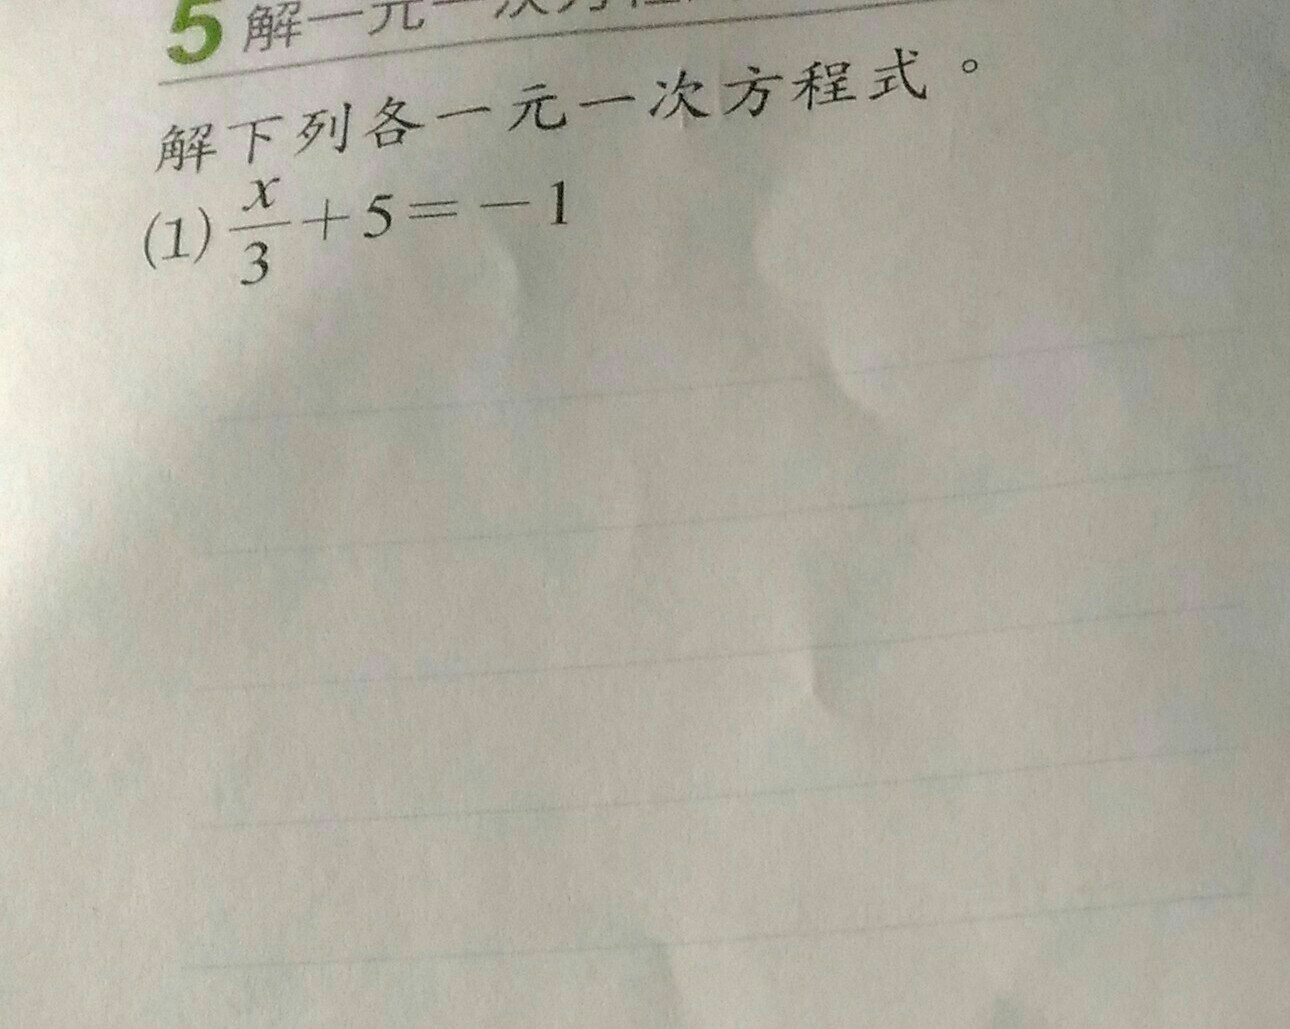 5 解一元一次方程
解下列各一元一次方程式。
(1) x/3 + 5 = -1